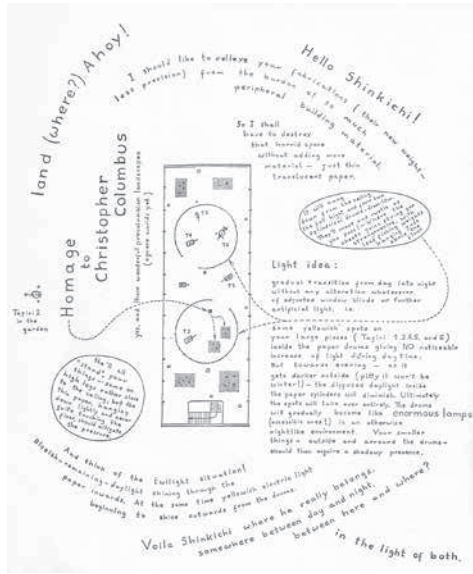 land (where?) Ahoy!
Hello Shinkichi!
I should like to relieve your fabrications (their new weight-
less precision) from the burden of so much
peripheral building material.
So I shall
have to destroy
that horrid space
without adding more
material — just thin
translucent paper.
Homage
to
Christopher
Columbus
yes, and those wonderful precolumbian landscapes
(square worlds yet.)
Tapiri 2
in the
garden
T3
T4
T5
T2
Light idea:
gradual transition from day into night
without any alteration whatsoever
of adjusted window blinds or further
artificial light, i.e.
some yellowish spots on
your large pieces (Tapiri 1.2.3.5. and 6)
inside the paper drums giving NO noticeable
increase of light during daytime.
But towards evening — as it
gets darker outside (pitty it won't be
winter!) — the disposed daylight inside
the paper cylinders will diminish. Ultimately
the spots will take over entirely. The drums
will gradually become like enormous lamps
(accessible ones!) in an otherwise
nightlike environment. Your smaller
things — outside and around the drums —
should then aquire a shadowy presence.
And think of the twilight situation!
Blueish-remaining-daylight shining through the
paper inwards. At the same time yellowish electric light
beginning to shine outwards from the drums.
Voila Shinkichi where he really belongs.
somewhere between day and night,
between here and where?
in the light of both.